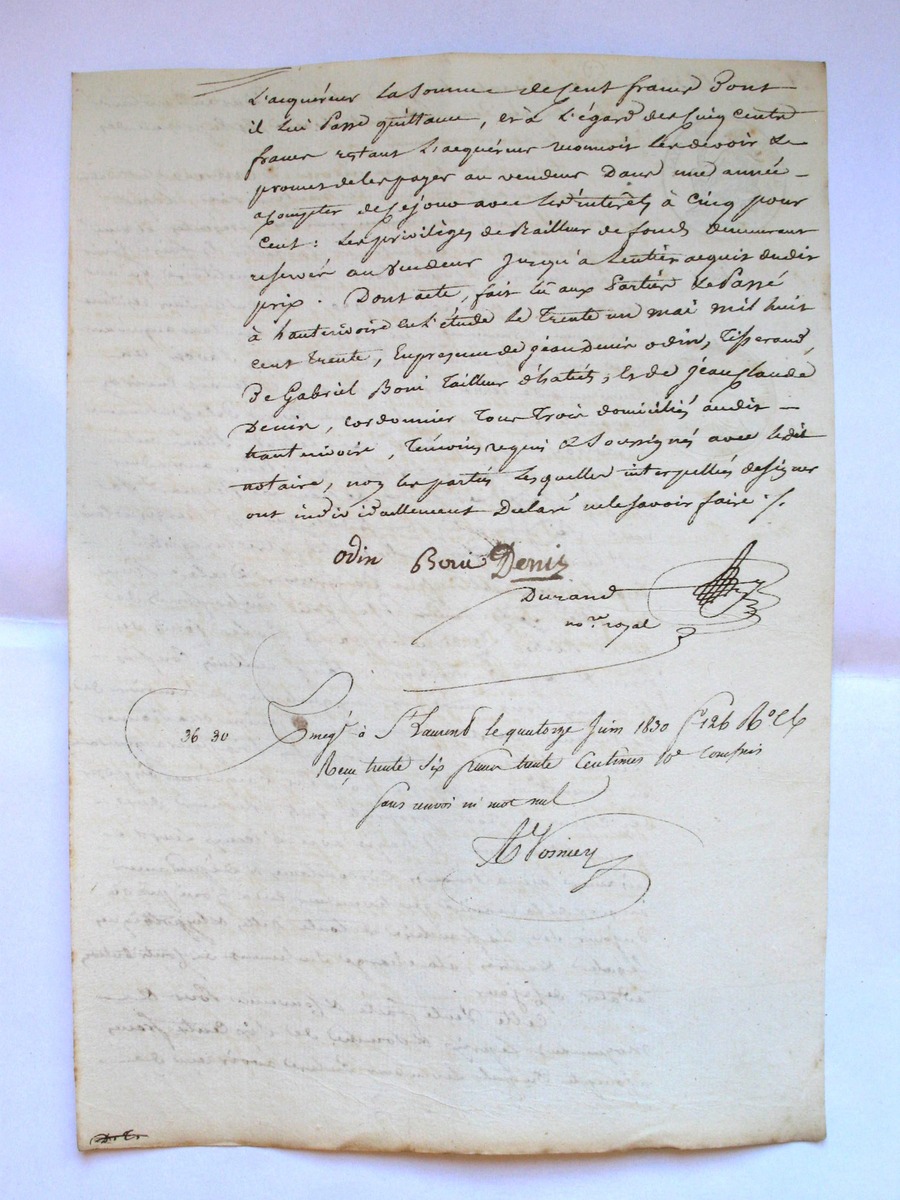 L'acquéreur la Somme de Cent francs Dont
il lui Passe quittance, et à L'égard des Cinq Cents
francs restant L'acquéreur reconnoit les devoir &
promet de les payer au vendeur Dans une année
a compter de Ce jour avec les intérêts à Cinq pour
cent : les privilèges de Bailleur de fonds demeurant
reservé au Vendeur jusqu'à lentier acquit dudit
prix. Dont acte, fait lu aux Parties & Passé
à hauterivoire en L'étude le trente un mai mil huit
cent trente, En presence de jean denis odin, Tisserand,
De Gabriel Boni Tailleur d'habits, et de jean Claude
Denis, cordonnier tous trois domiciliés audit
hauterivoire, Témoins requis & Soussignés avec ledit
notaire, non les parties lesquelles interpellés de signer
ont individuellement Déclaré ne le savoir faire ./.
odin Boni Denis
Durand
no.re royal
36 30 Enreg.é à St Laurent le quatorze Juin 1830 f° 126 R° C 6
Reçu trente six francs trente Centimes 10e compris
sans renvoi ni mot nul